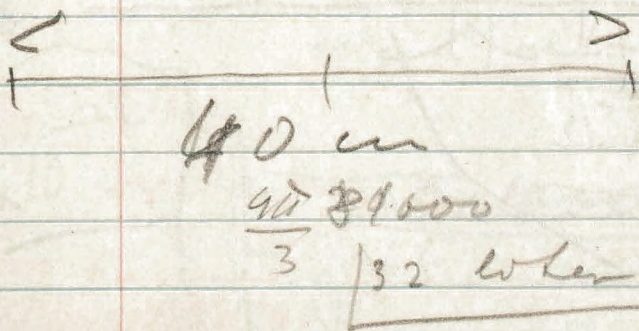 < >
40 cm
4π/3 8,000
32 liter